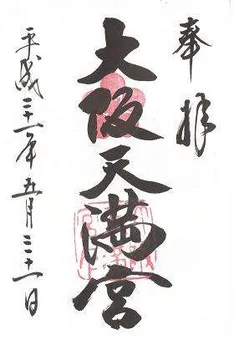 奉拝
大阪天満宮
平成二十一年五月三十一日